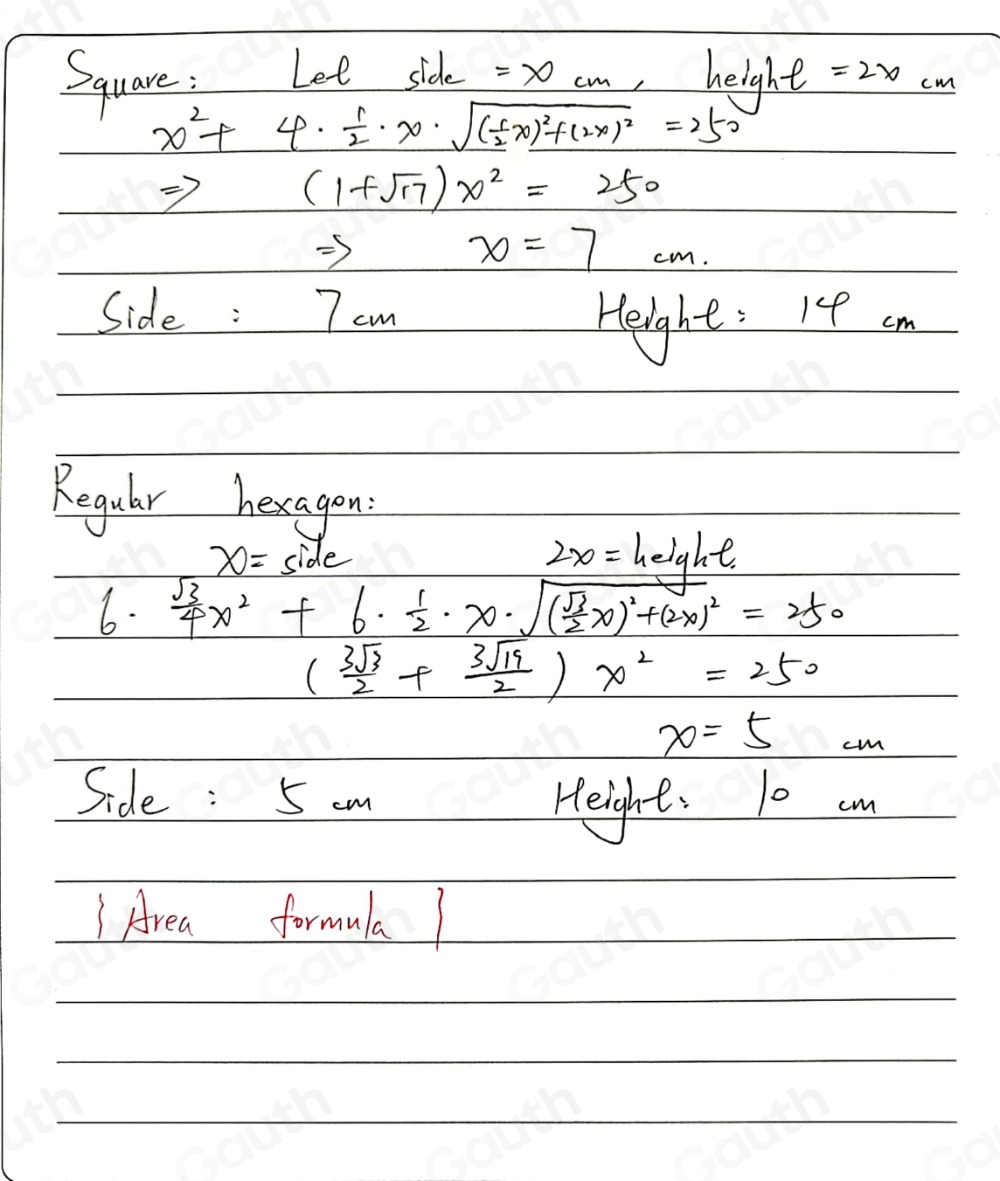 Square: Let side = x cm, height = 2x cm
x² + 4 · 1/2 · x · √((1/2 x)² + (2x)²) = 250
=> (1+√17) x² = 250
=> x = 7 cm.
Side : 7 cm Height: 14 cm
Regular hexagon:
x = side 2x = height.
6 · √3/4 x² + 6 · 1/2 · x · √((√3/2 x)² + (2x)²) = 250
(3√3/2 + 3√19/2) x² = 250
x = 5 cm
Side : 5 cm Height: 10 cm
{ Area formula }
Gauth